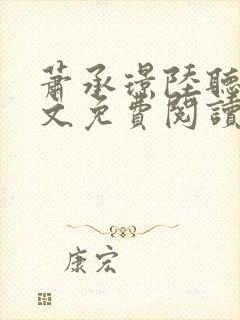 蕭承璟陸聽
文免費閱讀
康宏